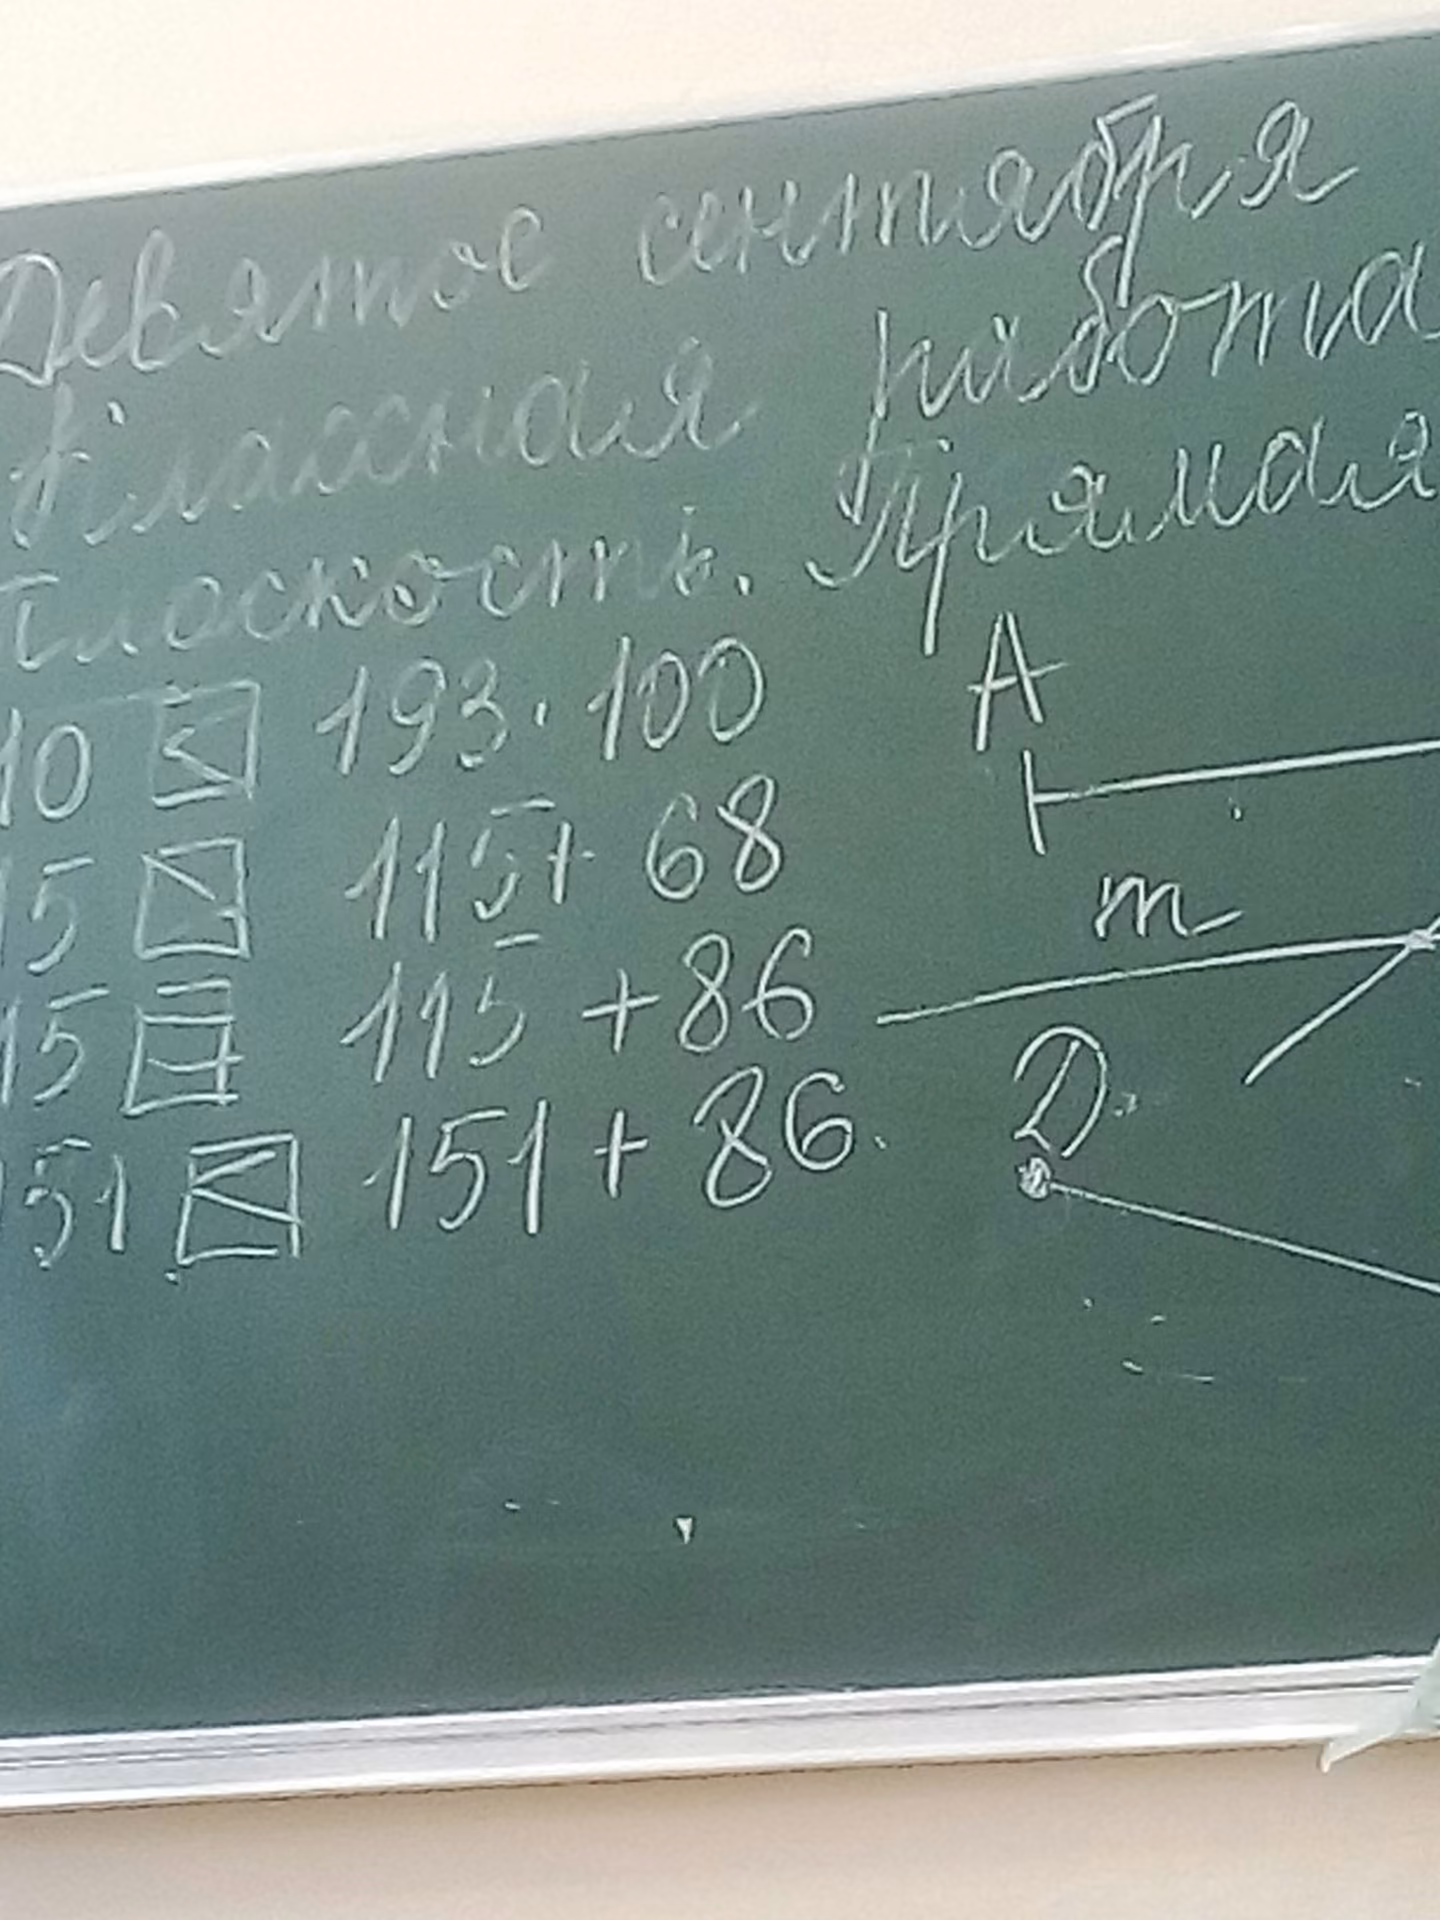 Девятое сентября
Классная работа
Плоскость. Прямая
10 < 193·100
A
15 > 115+ 68
m
15 = 115 +86
D
151 < 151+ 86.